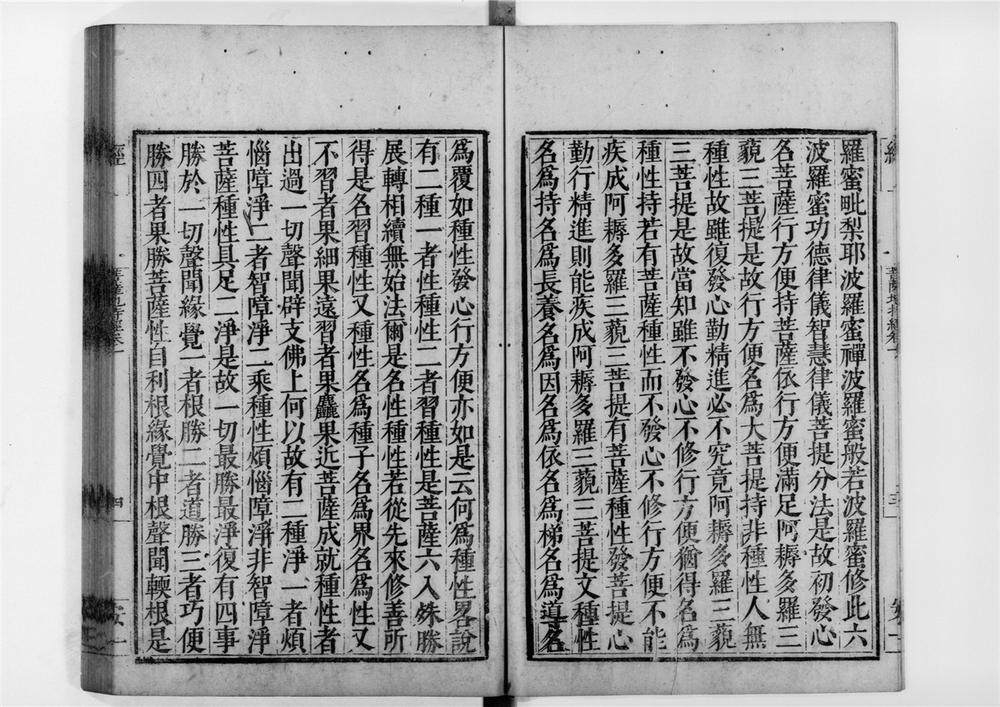 羅蜜毗梨耶波羅蜜禪波羅蜜般若波羅蜜修此六
波羅蜜功德律儀智慧律儀菩提分法是故初發心
名菩薩行方便持菩薩依行方便滿足阿耨多羅三
藐三菩提是故行方便名為大菩提持非種性人無
種性故雖復發心勤精進必不究竟阿耨多羅三藐
三菩提是故當知雖不發心不修行方便猶得名為
種性持若有菩薩種性而不發心不修行方便不能
疾成阿耨多羅三藐三菩提有菩薩種性發菩提心
勤行精進則能疾成阿耨多羅三藐三菩提又種性
名為持名為長養名為因名為依名為梯名為道名
為覆如種性發心行方便亦如是云何為種性畧說
有二種一者性種性二者習種性是菩薩六入殊勝
展轉相續無始法爾是名性種性若從先來修善所
得是名習種性又種性名為種子名為界名為性又
不習者果細果遠習者果麤果近菩薩成就種性者
出過一切聲聞辟支佛上何以故有二種淨一者煩
惱障淨二者智障淨二乘種性煩惱障淨非智障淨
菩薩種性具足二淨是故一切最勝最淨復有四事
勝於一切聲聞緣覺一者根勝二者道勝三者巧便
勝四者果勝菩薩性自利根緣覺中根聲聞輭根是